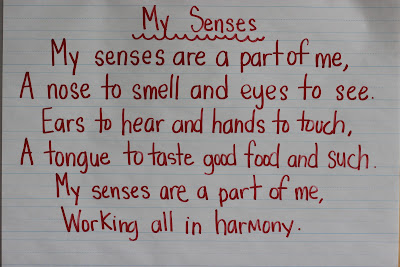 My Senses
My senses are a part of me,
A nose to smell and eyes to see.
Ears to hear and hands to touch,
A tongue to taste good food and such.
My senses are a part of me,
Working all in harmony.